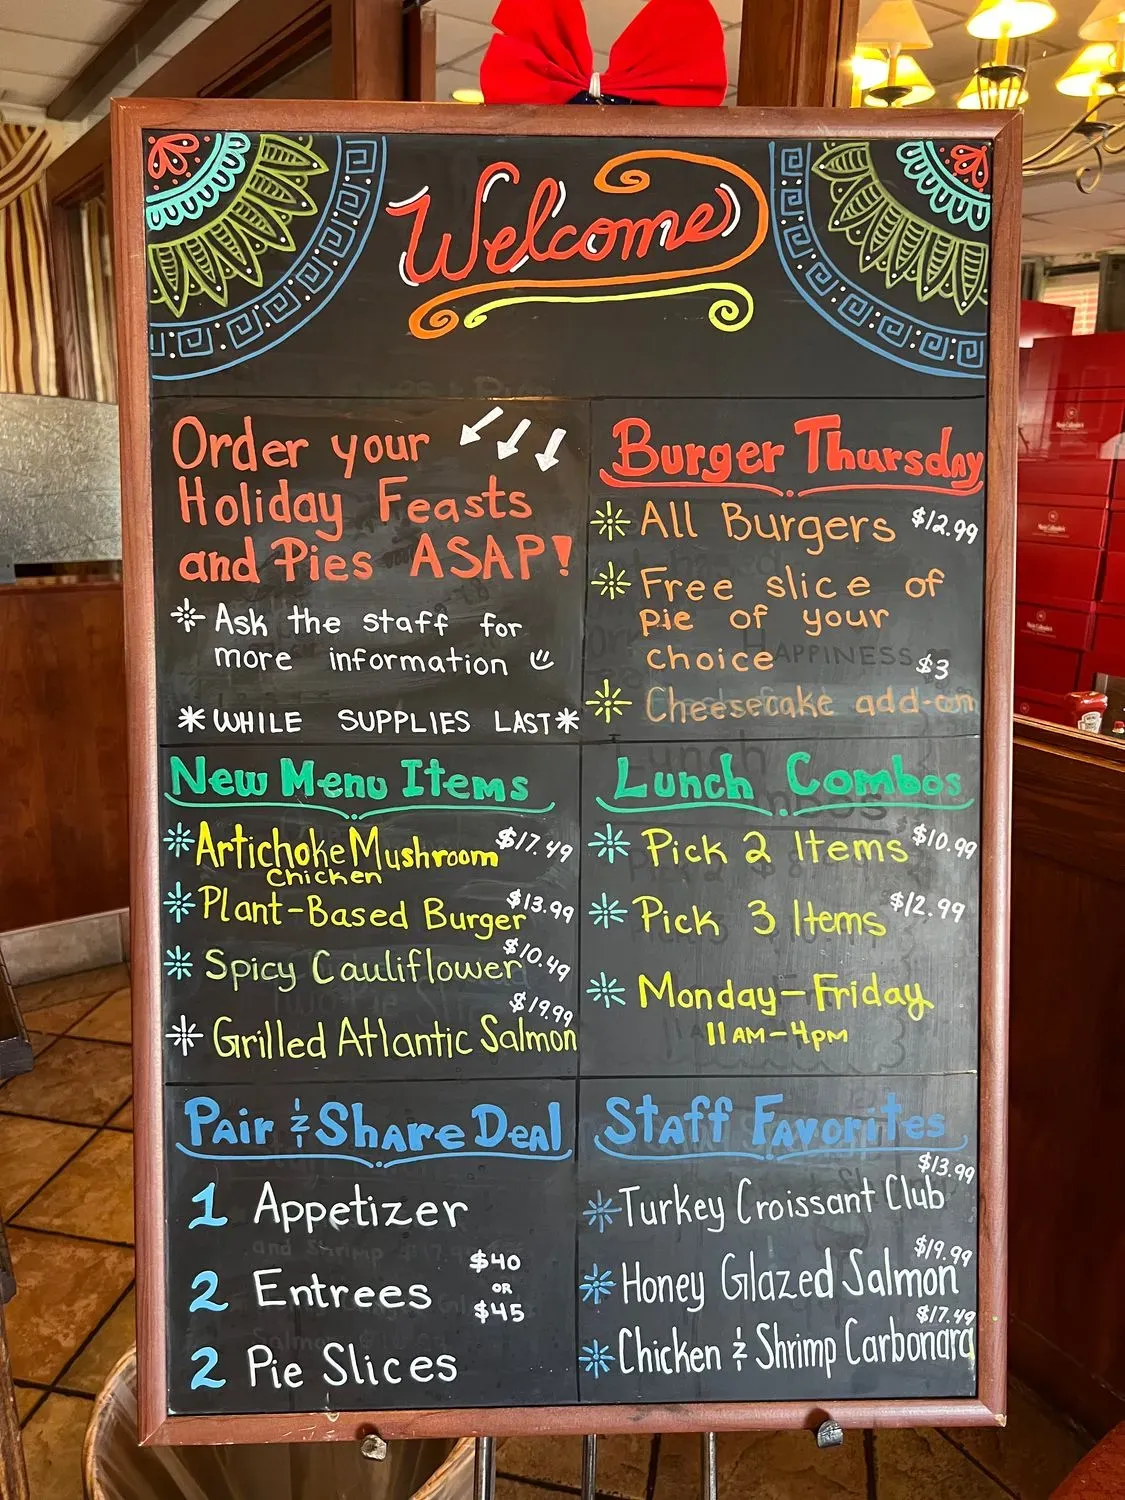 Welcome
Order your
Holiday Feasts
and Pies ASAP!
* Ask the staff for
more information
*WHILE SUPPLIES LAST*
Burger Thursday
* All Burgers $12.99
* Free slice of
pie of your
choice
HAPPINESS
$3
* Cheesecake add-on
New Menu Items
* Artichoke Mushroom $17.49
Chicken
* Plant-Based Burger $13.99
* Spicy Cauliflower $10.49
$19.99
* Grilled Atlantic Salmon
Lunch Combos
* Pick 2 Items $10.99
* Pick 3 Items $12.99
* Monday-Friday
11AM-4PM
Pair & Share Deal
1 Appetizer
2 Entrees $40
OR
$45
2 Pie Slices
Staff Favorites
$13.99
* Turkey Croissant Club
$19.99
* Honey Glazed Salmon
$17.49
* Chicken & Shrimp Carbonara